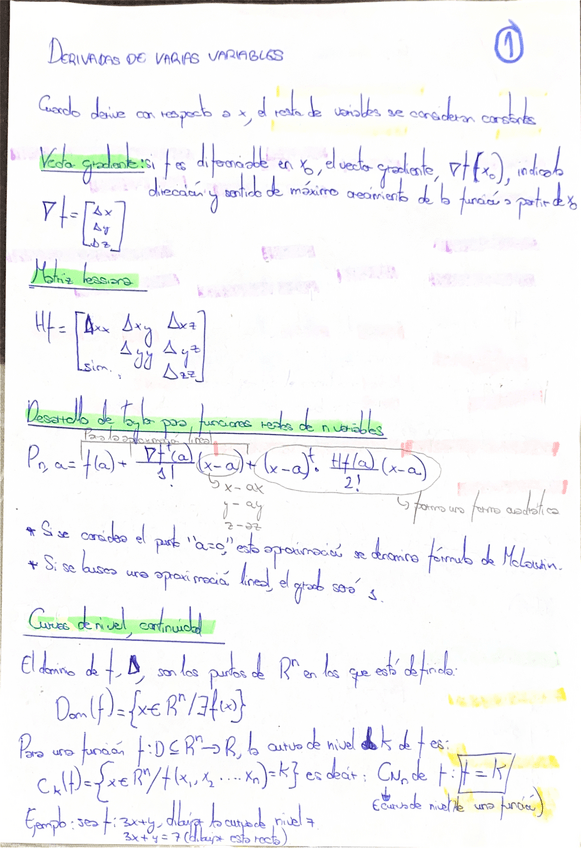 DERIVADAS DE VARIAS VARIABLES
1
Cuando derive con respecto a x, el resto de variables se consideran constantes
Vector gradiente: si f es diferenciable en x₀, el vector gradiente, ∇f(x₀), indica la
dirección y sentido de máximo crecimiento de la función a partir de x₀
∇f = [Δx
Δy
Δz]
Matriz hessiana
Hf = [Δxx Δxy Δxz
Δyy Δyz
sim. Δzz]
Desarrollo de taylor para funciones reales de n variables
Para la aproximació lineal
Pn,a = f(a) + ∇f(a)/1! (x-a) + (x-a)ᵗ · Hf(a)/2! (x-a)
↳ x-ax
y-ay
z-az
↳ forma una forma cuadrática
* Si se considera el punto "a=0," esta aproximació se denomina fórmula de McLaurin.
* Si se busca una aproximació lineal, el grado será 1.
Curvas de nivel, continuidad
El dominio de f, D, son los puntos de Rⁿ en los que está definida:
Dom(f) = {x∈Rⁿ/∃f(x)}
Para una función f: D⊆Rⁿ→R, la curva de nivel K de f es:
Ck(f) = {x∈Rⁿ/f(x₁, x₂ ....xn)=K} es decir: CNn de f: f = K
(curvas de nivel de una función)
Ejemplo: sea f: 3x+y, dibuja la curva de nivel 7
3x+y=7 (dibujar esta recta)